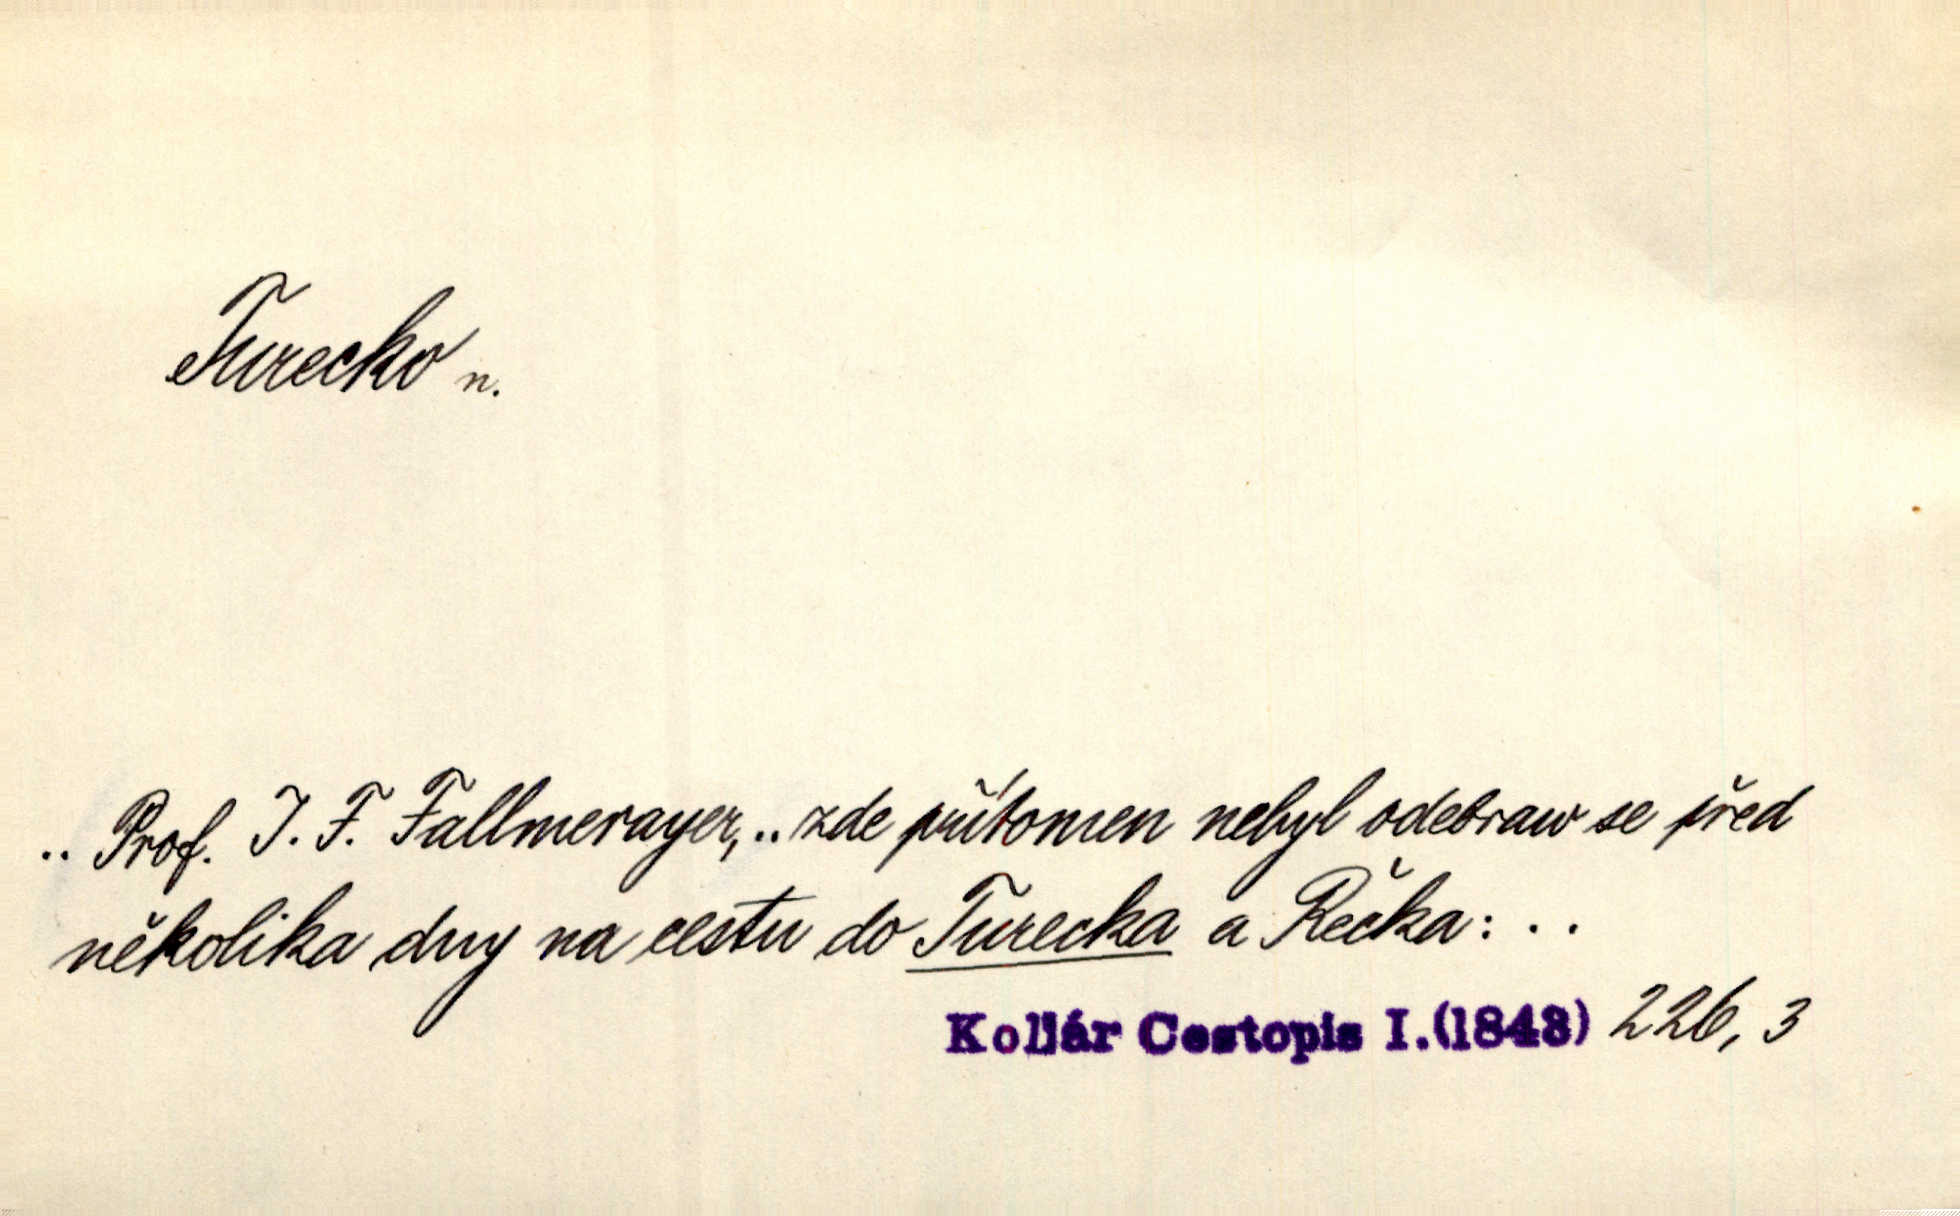 Turecko n.
.. Prof. J. F. Fallmerayer, .. zde přítomen nebyl odebraw se před
několika dny na cestu do Turecka a Řečka: . .
Kollár Cestopis I.(1843) 226, 3